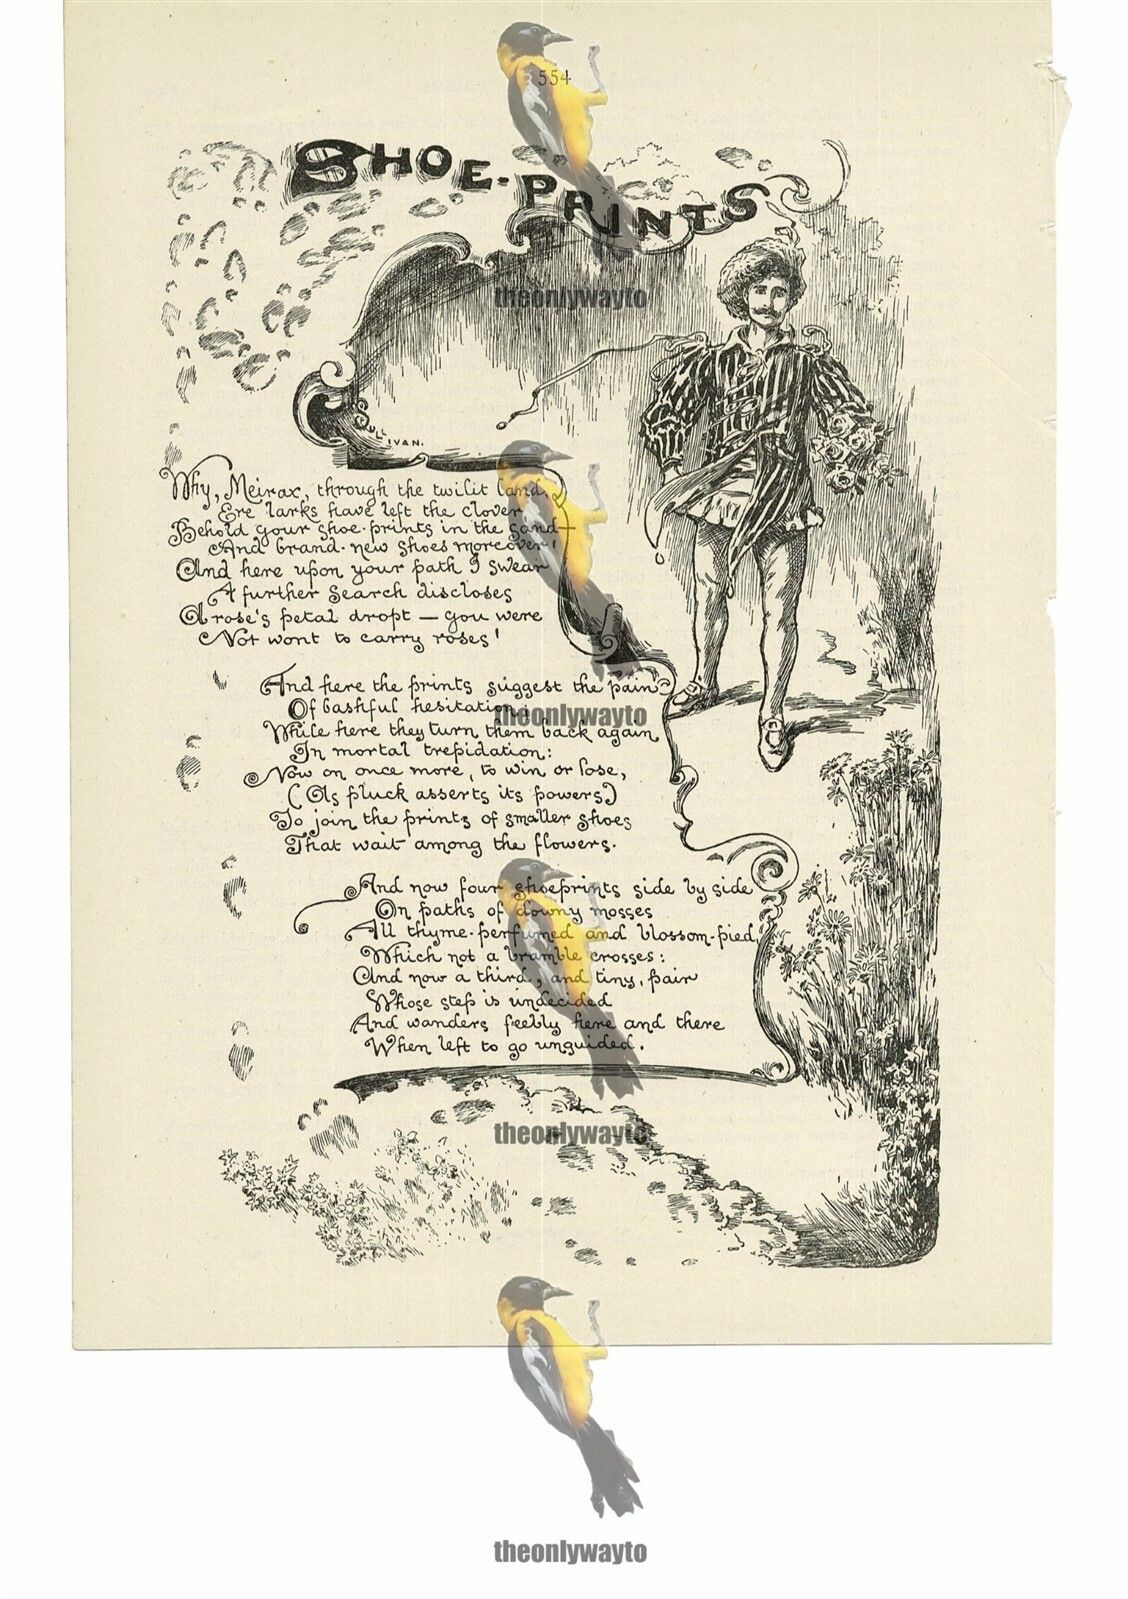 554
SHOE-PRINTS
SULLIVAN.
Why, Meirax, through the twilit land,
Ere larks have left the clover,
Behold your shoe-prints in the sand—
And brand-new shoes moreover!
And here upon your path I swear
A further search discloses
A rose's petal dropt — you were
Not wont to carry roses!
And here the prints suggest the pain
Of bashful hesitation
While here they turn them back again
In mortal trepidation:
Now on once more, to win or lose,
(As pluck asserts its powers)
To join the prints of smaller shoes
That wait among the flowers.
And now four shoeprints side by side
On paths of downy mosses
All thyme-perfumed and blossom-pied,
Which not a bramble crosses:
And now a third, and tiny, pair
Whose step is undecided
And wanders feebly here and there
When left to go unguided.
theonlywayto
theonlywayto
theonlywayto
theonlywayto